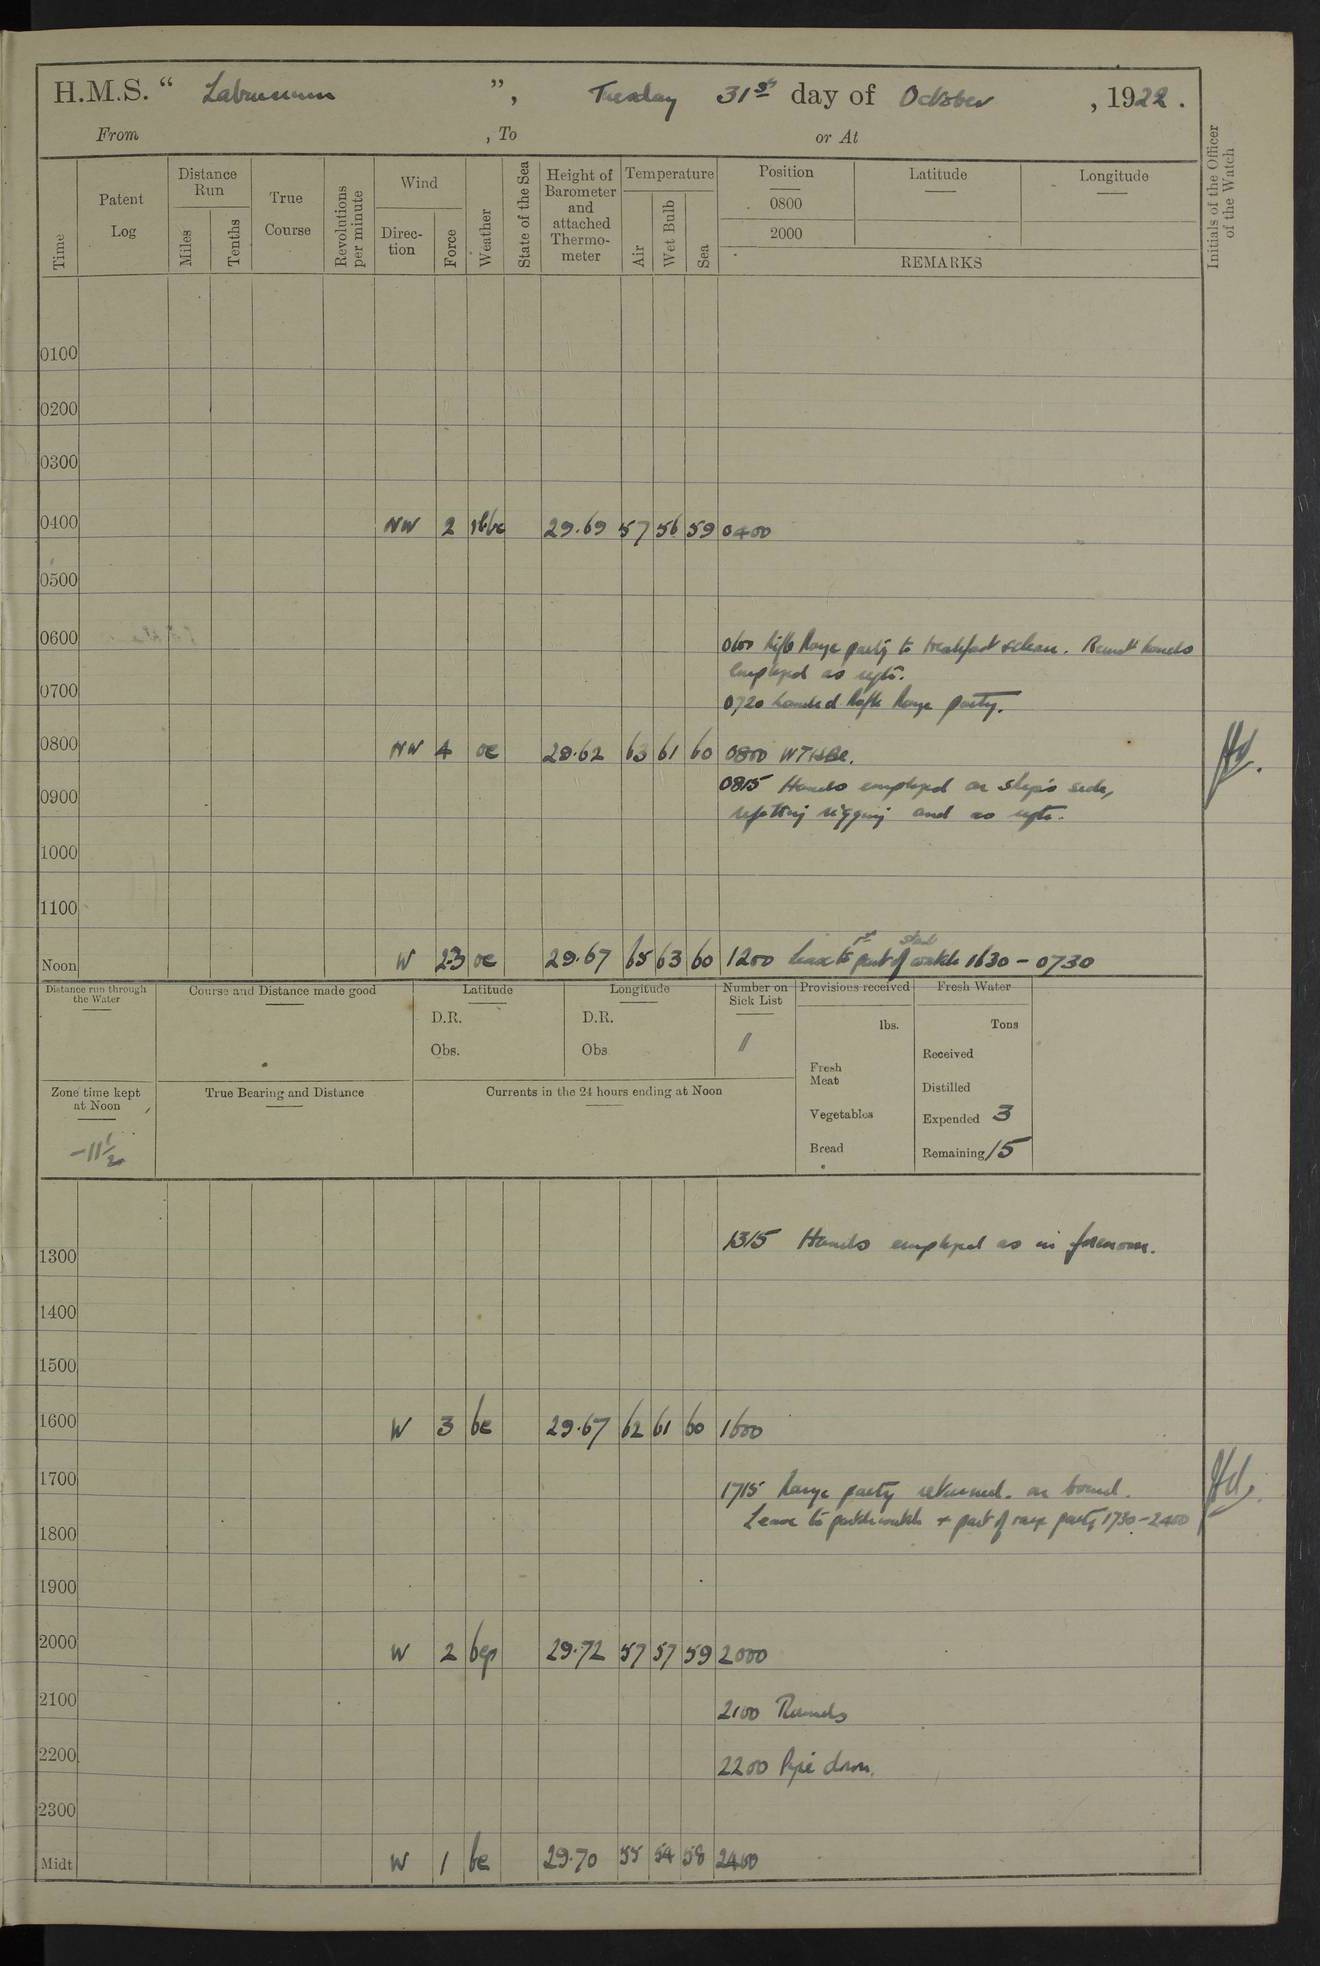 H.M.S. “ Laburnum ”, Tuesday 31st day of October , 1922.
From , To or At
Time
Patent Log
Distance Run
Miles
Tenths
True Course
Revolutions per minute
Wind
Direc-tion
Force
Weather
State of the Sea
Height of Barometer and attached Thermo-meter
Temperature
Air
Wet Bulb
Sea
Position
0800
2000
Latitude
Longitude
REMARKS
Initials of the Officer of the Watch
0100
0200
0300
0400 NW 2 29.69 57 56 59 0400
0500
0600 0600 Rifle Range party to breakfast & clean. Remdr hands
employed as reqte.
0700 0720 Landed Rifle Range party.
0800 NW 4 oc 29.62 63 61 60 0800
0900 0815 Hands employed on ship's side,
refitting rigging and as reqte.
1000
1100
Noon W 2-3 oc 29.67 65 63 60 1200 Leave to 1st part of stbd watch 1630 - 0730
Distance run through the Water
Course and Distance made good
Latitude
D.R.
Obs.
Longitude
D.R.
Obs
Number on Sick List
11
Provisions received
lbs.
Fresh Meat
Vegetables
Bread
Fresh Water
Tons
Received
Distilled
Expended 3
Remaining 15
Zone time kept at Noon
-11½
True Bearing and Distance
Currents in the 24 hours ending at Noon
1300 1315 Hands employed as in forenoon.
1400
1500
1600 W 3 bc 29.67 62 61 60 1600
1700 1715 Range party returned on board.
1800 Leave to part of range party 1730-2400
1900
2000 W 2 bcp 29.72 57 57 59 2000
2100 2100 Rounds
2200 2200 Pipe down.
2300
Midt W 1 bc 29.70 55 54 58 2400